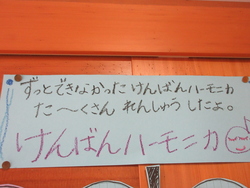 ずっとできなかったけんばんハーモニカ
た〜くさん れんしゅうしたよ。
けんばんハーモニカ